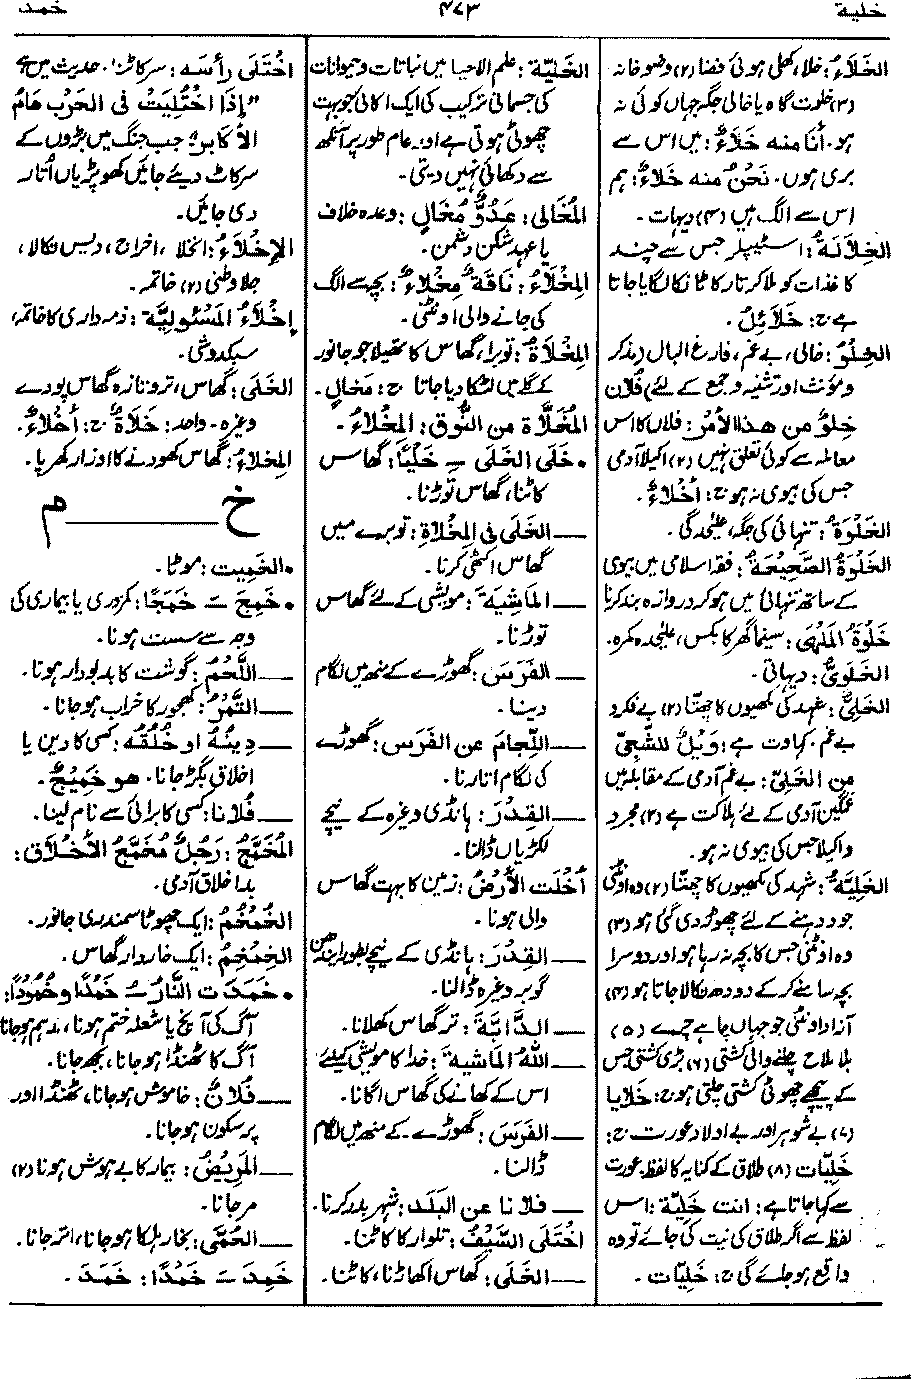 خلية
۴۷۳
خمد
الخَلَاءُ: خلا، کھلی ہوئی فضا (۲) وضو خانہ
(۳) خلوت گاہ یا خالی جگہ جہاں کوئی نہ
ہو۔ أَنَا منه خَلَاءٌ: میں اس سے
بری ہوں۔ نَحْنُ منه خَلَاءٌ: ہم
اس سے الگ ہیں (۴) دیہات۔
الخِلَالَةُ: اسٹیپلر جس سے چند
کاغذات کو ملا کر تار کا ٹانکا لگایا جاتا
ہے ج: خَلَائِلُ۔
الخِلْوُ: خالی، بے غم، فارغ البال (مذکر
و مؤنث اور تثنیہ و جمع کے لئے) فُلَانٌ
خِلْوٌ من هذا الأَمْرُ: فلاں کا اس
معاملہ سے کوئی تعلق نہیں (۲) اکیلا آدمی
جس کی بیوی نہ ہو ج: أَخْلَاءٌ۔
الخَلْوَةُ: تنہائی کی جگہ، علیحدگی۔
الخَلْوَةُ الصَّحِيحَةُ: فقہ اسلامی میں بیوی
کے ساتھ تنہائی میں ہو کر دروازہ بند کرنا
خَلْوَةُ المَلْهَى: سینما گھر کا بکس، علیحدہ کمرہ۔
الخَلَوِيُّ: دیہاتی۔
الخَلِيُّ: شہد کی مکھیوں کا چھتّا (۲) بے فکر و
بے غم۔ کہاوت ہے: وَيْلٌ لِلشَّجِيِّ
مِن الخَلِيِّ: بے غم آدمی کے مقابلہ میں
غمگین آدمی کے لئے ہلاکت ہے (۳) مجرد
و اکیلا جس کی بیوی نہ ہو۔
الخَلِيَّةُ: شہد کی مکھیوں کا چھتّا (۲) وہ اونٹنی
جو دوہنے کے لئے چھوڑ دی گئی ہو (۳)
وہ اونٹنی جس کا بچہ نہ رہا ہو اور دوسرا
بچہ سامنے کر کے دودھ نکالا جاتا ہو (۴)
آزاد اونٹنی جو جہاں چاہے چرے (۵)
بلا ملاح چلنے والی کشتی (۶) بڑی کشتی جس
کے پیچھے چھوٹی کشتی چلتی ہو ج: خَلَايا
(۷) بے شوہر اور بے اولاد عورت ج:
خَلِيَّات (۸) طلاق کے کنایہ کا لفظ۔ عورت
سے کہا جاتا ہے: انت خَلِيَّة: اس
لفظ سے اگر طلاق کی نیت کی جائے تو وہ
واقع ہو جائے گی ج: خَلِيَّات۔
الخَلِيَّة: علم الاحیا میں نباتات و حیوانات
کی جسمانی ترکیب کی ایک اکائی جو بہت
چھوٹی ہوتی ہے اور عام طور پر آنکھ
سے دکھائی نہیں دیتی۔
المُخَالِى: عَدُوٌّ مُخَالٍ: وعدہ خلاف
یا عہد شکن دشمن۔
المِخْلَاءُ: نَاقَةٌ مِخْلَاءٌ: بچہ سے الگ
کی جانے والی اونٹنی۔
المِخْلَاةُ: توبرا، گھاس کا تھیلا جو جانور
کے گلے میں لٹکا دیا جاتا ج: مَخَالٍ۔
المُخَلَّاة من النُّوق: المِخْلَاءُ۔
• خَلَى الخَلَى ــِـ خَلْيًا: گھاس
کاٹنا، گھاس توڑنا۔
— الخَلَى فى المِخْلَاةِ: توبرے میں
گھاس اکٹھی کرنا۔
— المَاشِيَةَ: مویشی کے لئے گھاس
توڑنا۔
— الفَرَسَ: گھوڑے کے منھ میں لگام
دینا۔
— اللِّجَامَ عن الفَرَس: گھوڑے
کی لگام اتارنا۔
— القِدْرَ: ہانڈی وغیرہ کے نیچے
لکڑیاں ڈالنا۔
أَخْلَت الأَرْضُ: زمین کا بہت گھاس
والی ہونا۔
— القِدْرَ: ہانڈی کے نیچے بطور ایندھن
گوبر وغیرہ ڈالنا۔
— الدَّابَّةَ: تر گھاس کھلانا۔
— اللهُ المَاشِيَةَ: خدا کا مویشی کیلئے
اس کے کھانے کی گھاس اگانا۔
— الفَرَسَ: گھوڑے کے منھ میں لگام
ڈالنا۔
— فلانا عن البَلَد: شہر بدر کرنا۔
اخْتَلَى السَّيْفُ: تلوار کا کاٹنا۔
— الخَلَى: گھاس اکھاڑنا، کاٹنا۔
اخْتَلَى رأسَه: سر کاٹنا۔ حدیث میں ہے
”إِذَا اخْتُلِيَتْ فى الحَرْبِ هَامُ
الأكابر“ جب جنگ میں بڑوں کے
سر کاٹ دیئے جائیں کھوپڑیاں اُتار
دی جائیں۔
الإِخْلَاءُ: انخلا، اخراج، دیس نکالا،
جلا وطنی (۲) خاتمہ۔
إِخْلَاءُ المَسْئُولِيَّة: ذمہ داری کا خاتمہ،
سبکدوشی۔
الخَلَى: گھاس، تر و تازہ گھاس پودے
وغیرہ۔ واحد: خَلَاةٌ ج: أَخْلَاءٌ۔
المِخْلَاءُ: گھاس کھودنے کا اوزار کھرپا۔
خ — م
• الخَمِيت: موٹا۔
• خَمِجَ ــَـ خَمَجًا: کمزوری یا بیماری کی
وجہ سے سست ہونا۔
— اللَّحْمُ: گوشت کا بدبودار ہونا۔
— التَّمْرُ: کھجور کا خراب ہو جانا۔
— دِينُهُ او خُلُقُه: کسی کا دین یا
اخلاق بگڑ جانا۔ هو خَمِيجٌ۔
— فُلانا: کسی کا برائی سے نام لینا۔
المُخَمَّجُ: رَجُلٌ مُخَمَّجُ الأخْلَاق:
بد اخلاق آدمی۔
الخُمْخُمُ: ایک چھوٹا سمندری جانور۔
الخِمْخِمُ: ایک خاردار گھاس۔
• خَمَدَت النَّارُ ــُـ خَمْدًا و خُمُودًا:
آگ کی آنچ یا شعلہ ختم ہونا، مدہم ہو جانا
آگ کا ٹھنڈا ہو جانا، بجھ جانا۔
— فُلَانٌ: خاموش ہو جانا، ٹھنڈا اور
پرسکون ہو جانا۔
— المَرِيضُ: بیمار کا بے ہوش ہونا (۲)
مر جانا۔
— الحُمَّى: بخار ہلکا ہو جانا، اتر جانا۔
خَمِدَ ــَـ خَمْدًا: خَمَدَ۔